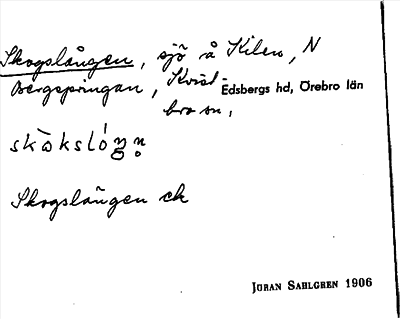 Skogslången, sjö å Kilen, N
Bergspringan, Kvist-
Edsbergs hd, Örebro län
bro sn,
Skogslången ek
JÖRAN SAHLGREN 1906